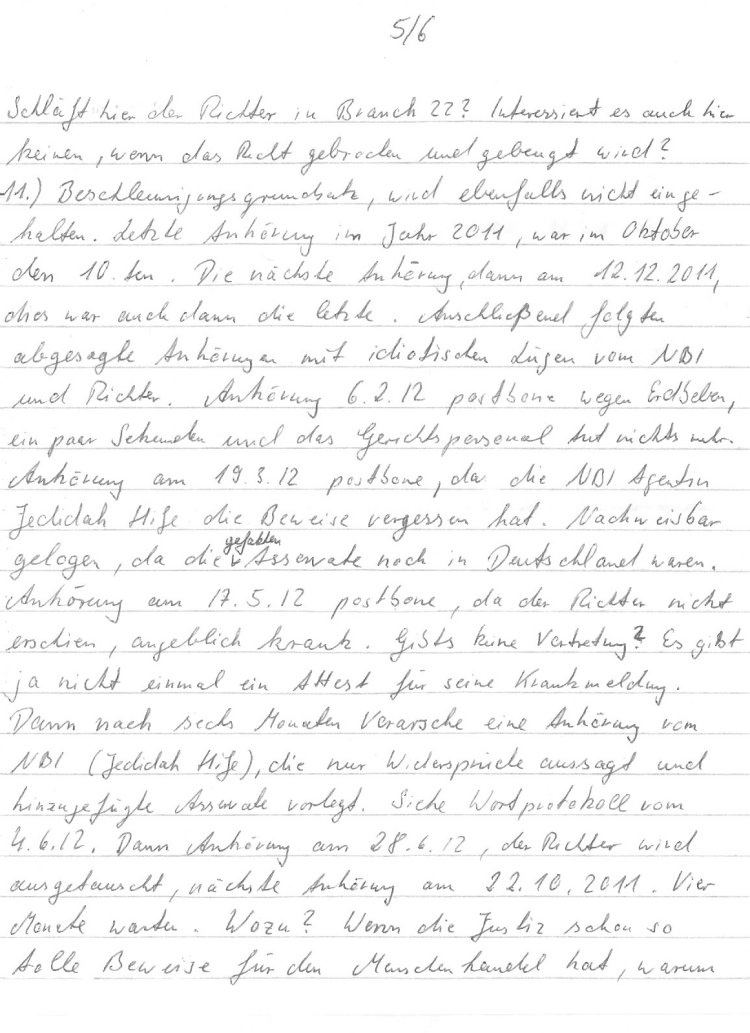 5/6
Schläft hier der Richter in Branch 22? Interessiert es auch hier
keinen, wenn das Recht gebrochen und gebeugt wird?
11.) Beschleunigungsgrundsatz, wird ebenfalls nicht einge-
halten. Letzte Anhörung im Jahr 2011, war im Oktober
den 10.ten. Die nächste Anhörung, dann am 12.12.2011,
dies war auch dann die letzte. Anschließend folgten
abgesagte Anhörungen mit idiotischen Lügen vom NBI
und Richter. Anhörung 6.2.12 postbone wegen Erdbeben,
ein paar Sekunden und das Gerichtspersonal tut nichts mehr.
Anhörung am 19.3.12 postbone, da die NBI Agentin
Jedidah Hife die Beweise vergessen hat. Nachweisbar
gelogen, da die gefakten Asservate noch in Deutschland waren.
Anhörung am 17.5.12 postbone, da der Richter nicht
erschien, angeblich krank. Gibts keine Vertretung? Es gibt
ja nicht einmal ein Attest für seine Krankmeldung.
Dann nach sechs Monaten Verarsche eine Anhörung vom
NBI (Jedidah Hife), die nur Widersprüche aussagt und
hinzugefügte Asservate vorlegt. Siehe Wortprotokoll vom
4.6.12. Dann Anhörung am 28.6.12, der Richter wird
ausgetauscht, nächste Anhörung am 22.10.2011. Vier
Monate warten. Wozu? Wenn die Justiz schon so
tolle Beweise für den Menschenhandel hat, warum